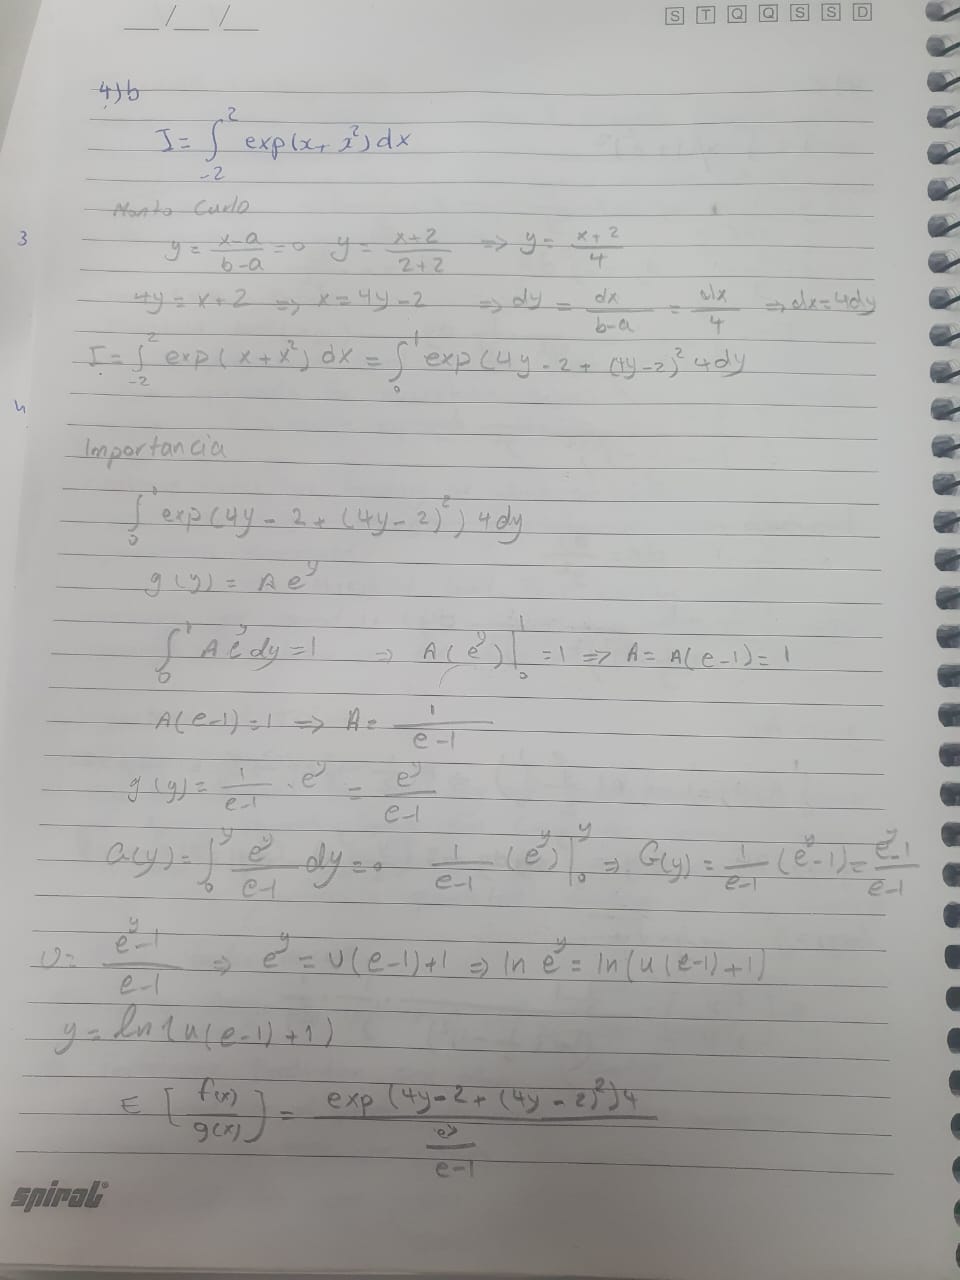 __/__/__ S T Q Q S S D
4) b
I = ∫_{-2}^{2} exp(x + x²) dx
Monte Carlo
3
y = (x-a)/(b-a) => y = (x+2)/(2+2) => y = (x+2)/4
4y = x+2 => x = 4y-2 => dy = dx/(b-a) = dx/4 => dx = 4dy
I = ∫_{-2}^{2} exp(x + x²) dx = ∫_0^1 exp(4y - 2 + (4y-2)² 4dy
Importancia
∫_0^1 exp(4y - 2 + (4y-2)²) 4dy
g(y) = A e^y
∫_0^1 A e^y dy = 1 => A(e^y)|_0^1 = 1 => A = A(e-1) = 1
A(e-1) = 1 => A = 1/(e-1)
g(y) = 1/(e-1) . e^y = e^y/(e-1)
G(y) = ∫_0^y e^y/(e-1) dy => 1/(e-1) (e^y)|_0^y => G(y) = 1/(e-1) (e^y-1) = (e^y-1)/(e-1)
U = (e^y-1)/(e-1) => e^y = U(e-1)+1 => ln e^y = ln(u(e-1)+1)
y = ln(u(e-1)+1)
E[f(x)/g(x)] = exp(4y-2+(4y-2)²)4 / (e^y/(e-1))
spiral